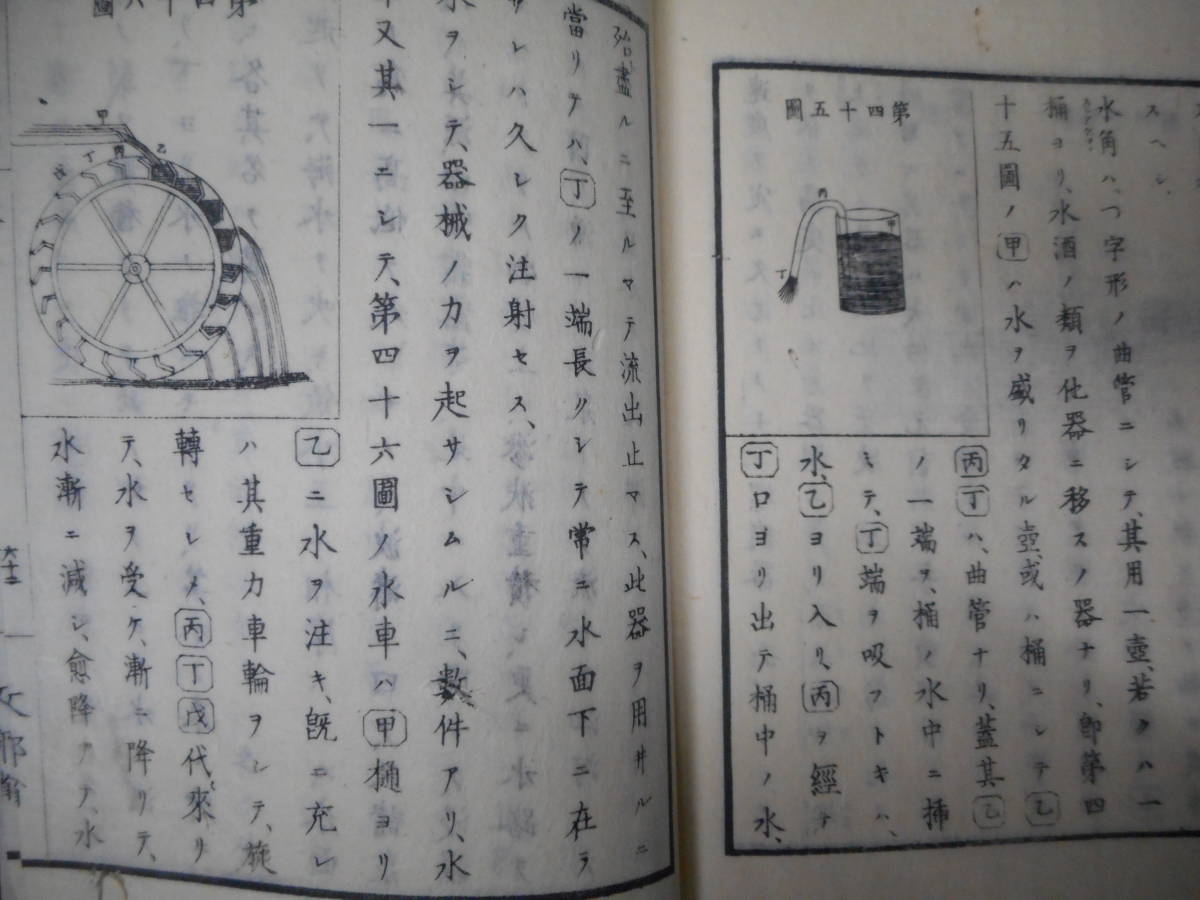 スヘシ、
水角ハ、つ字形ノ曲管ニシテ、其用一壺、若クハ一
桶ヨリ、水酒ノ類ヲ他器ニ移スノ器ナリ、即第四
十五圖ノ甲ハ水ヲ盛リタル壺、或ハ桶ニシテ乙
第四十五圖
丙
丁
丙丁ハ、曲管ナリ、蓋其乙
ノ一端ヲ、桶ノ水中ニ挿
ミテ、丁端ヲ吸フトキハ、
水、乙ヨリ入リ、丙ヲ經テ
丁口ヨリ出テ桶中ノ水、
殆盡ルニ至ルマテ流出止マス、此器ヲ用井ルニ
當リテハ、丁ノ一端長クシテ常ニ水面下ニ在ラ
サレハ久シク注射セス、
水ヲシテ、器械ノ力ヲ起サシムルニ、數件アリ、水
又其一ニシテ、第四十六圖ノ水車ハ甲樋ヨリ
甲
乙
丙
丁
戊
乙ニ水ヲ注キ、既ニ充レ
ハ其重力車輪ヲシテ、旋
轉セシメ、丙丁戊代來リ
テ、水ヲ受ケ、漸ニ降リテ、
水漸ニ減シ、愈降クテ、水
第
四
十
六
圖
六十二